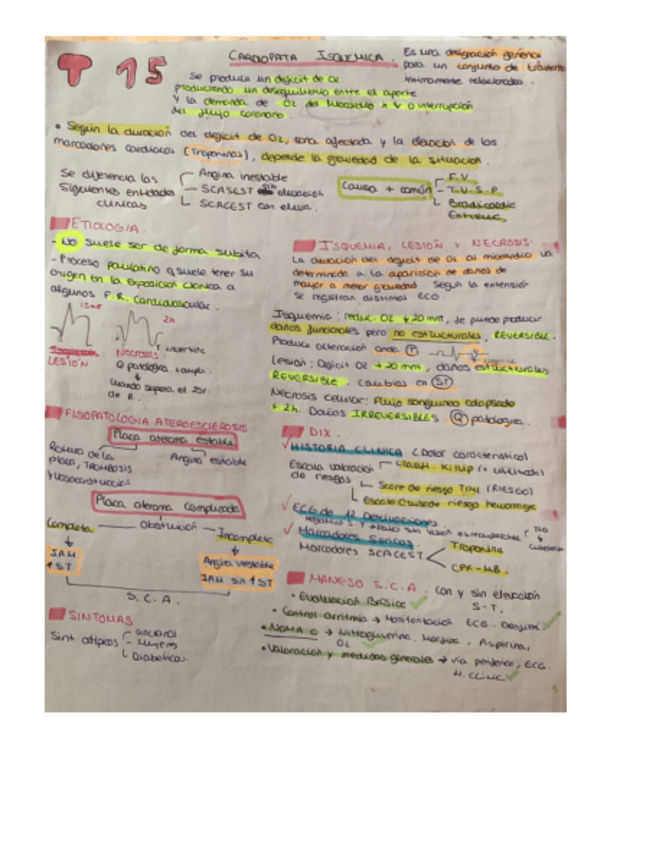 T 15
CARDIOPATA ISQUEMICA.
Es una designación generica
para un conjunto de trastornos
intimamente relacionados.
Se produce un deficit de O2
produciendo un desequilibrio entre el aporte
y la demanda de O2 del Miocardio x ↓ o interrupción
del flujo coronario.
• Según la duración del deficit de O2, zona afectada y la elevación de los
marcadores cardiacos (Troponinas), depende la gravedad de la situacion.
Se diferencia las
siguientes entidades
clinicas
Angina inestable
SCASEST sin elevación
SCACEST con eleva.
Causa + común
F.V.
T.V.S.P.
Bradicardia
Extrema.
ETIOLOGIA.
- NO suele ser de forma subita
- Proceso paulatino q suele tener su
origen en la exposición cronica a
algunos F.R. cardiovascular.
2h
LESIÓN
NECROSIS
T invertida
Q patologica
Cuando supera el 25%
de R.
ISQUEMIA, LESIÓN Y NECROSIS.
La duración del deficit de O2 al miocardio va
determinado a la aparicion de daños de
mayor a menor gravedad. Según la extensión
se registran distintos ECG.
Isquemia: reduc. O2 ↓20 mm, se puede producir
daños funcionales pero no estructurales, REVERSIBLE.
Produce alteración onda T
Lesión: Deficit O2 +20 mm, daños estructurales
REVERSIBLE, cambios en ST
Necrosis celular: Flujo sanguineo colapsado
+ 2h. Daños IRREVERSIBLES. Q patologica.
FISIOPATOLOGIA ATEROESCLEROSIS
Placa ateroma estable
Rotura de la
placa, TROMBOSIS
y Vasoconstricción
Angina estable
Placa ateroma complicada
Completa — Obstrucción — Incompleta
IAM
↑ST
Angina inestable
IAM sin ↑ST
S.C.A.
SINTOMAS
Sint atipicos
ancianos
Mujeres
Diabeticos.
DIX.
✓ HISTORIA CLINICA (Dolor caracteristico)
Escala valoración
de riesgos
Clasif. Killip (+ utilizada)
Score de riesgo TIMI (RIESGO)
Escala Crusade riesgo hemorragia
✓ ECG de 12 Derivaciones.
✓ Marcadores Sericos.
Marcadores SCACEST
Troponina
CPK-MB.
MANEJO S.C.A. con y sin elevación
S-T.
• Evaluación Básica ✓
• Control arritmia → Monitorización ECG. Desfibri. ✓
• NOMA O → Nitroglicerina, Morfina, Aspirina,
O2 ✓
• Valoración y medidas generales → via periferica, ECG.
H. CLINIC ✓